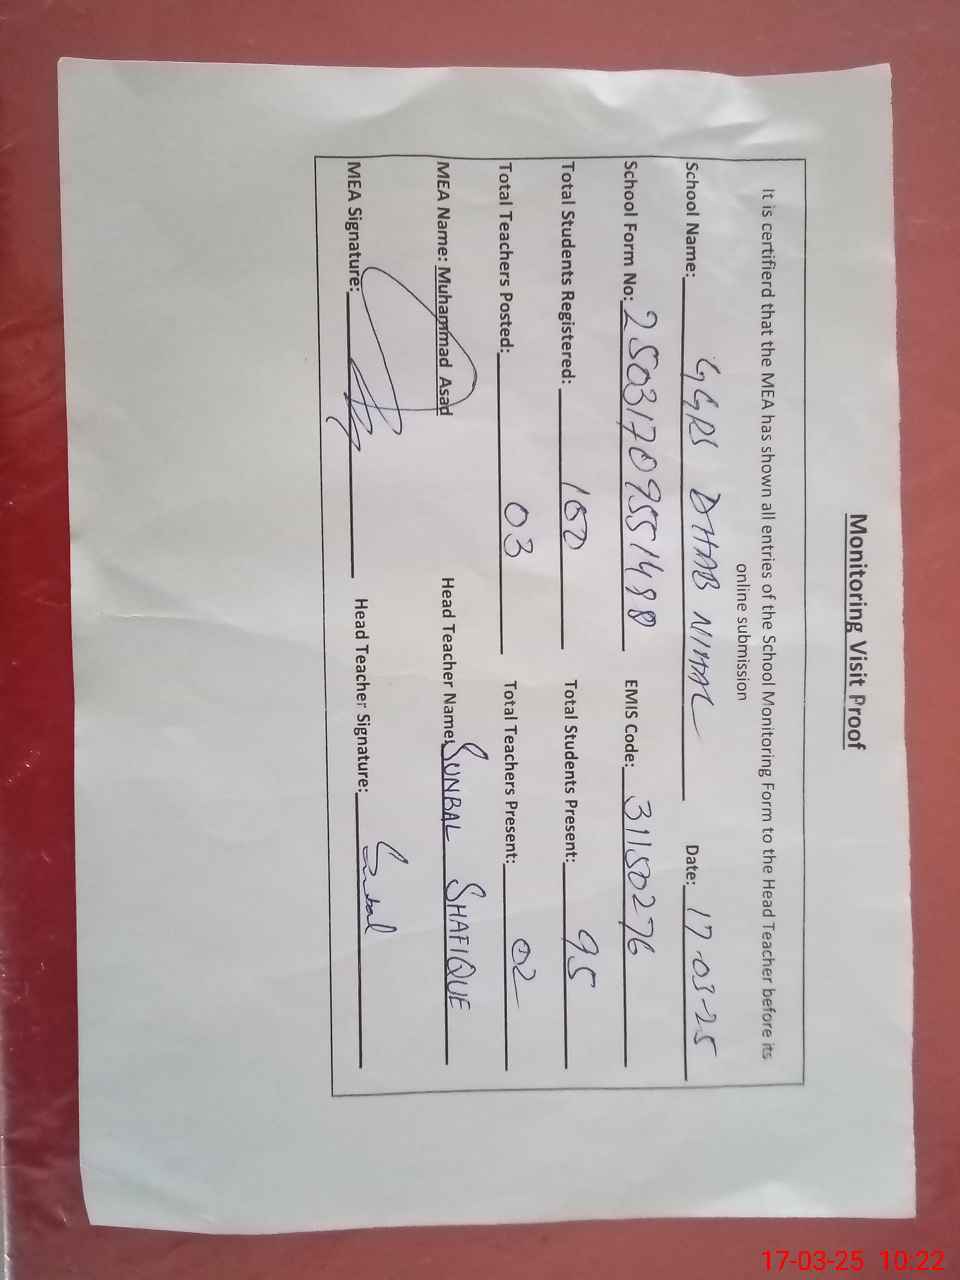 Monitoring Visit Proof
It is certifierd that the MEA has shown all entries of the School Monitoring Form to the Head Teacher before its
online submission
School Name: GGRS DHAB NIHAL Date: 17-03-25
School Form No: 25031709551488 EMIS Code: 31150276
Total Students Registered: 150 Total Students Present: 95
Total Teachers Posted: 03 Total Teachers Present: 02
MEA Name: Muhammad Asad Head Teacher Name: SUNBAL SHAFIQUE
MEA Signature: Head Teacher Signature: Sunbal
17-03-25 10:22